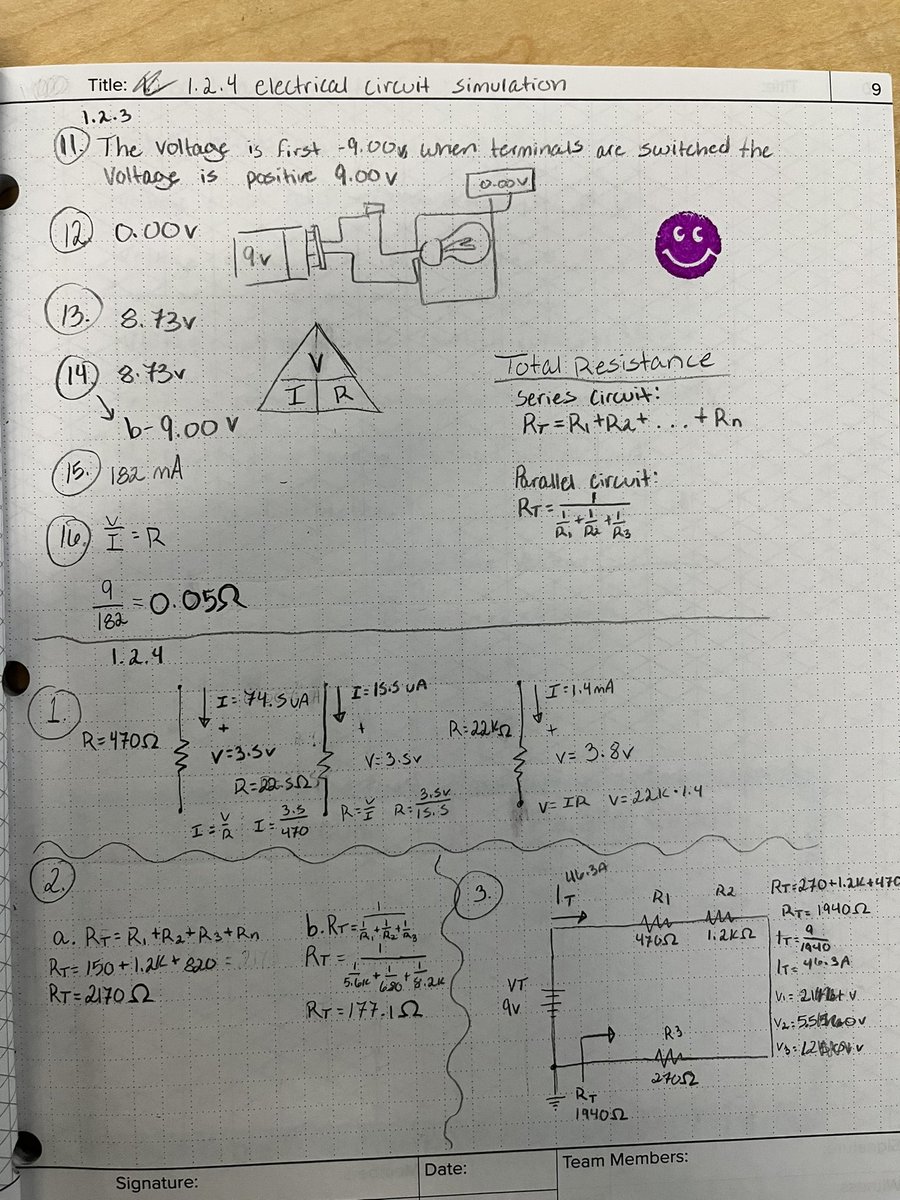 Title: 1.2.4 electrical circuit simulation
9
1.2.3
11. The voltage is first -9.00v when terminals are switched the
voltage is positive 9.00v
0.00v
12. 0.00v
9v
13. 8.73v
14. 8.73v
b-9.00v
V
I R
Total Resistance
Series Circuit:
RT=R1+R2+...+Rn
Parallel Circuit:
RT= 1
1/R1 + 1/R2 + 1/R3
15. 182 mA
16. V/I = R
9/182 = 0.05Ω
1.2.4
1.
R=470Ω
I=74.5uA
+
V=3.5v
I=V/R I=3.5/470
I=15.5uA
+
V=3.5v
R=22.5Ω
R=V/I R=3.5v/15.5
I=1.4mA
R=22kΩ
+
V=3.8v
V=IR V=22k·1.4
2.
a. RT=R1+R2+R3+Rn
RT=150+1.2k+820
RT=2170Ω
b. RT= 1
1/R1 + 1/R2 + 1/R3
RT= 1
1/5.6k + 1/680 + 1/8.2k
RT=177.1Ω
3.
46.3A
IT
R1
470Ω
R2
1.2kΩ
VT
9v
R3
270Ω
RT
1940Ω
RT=270+1.2k+470
RT=1940Ω
IT=9/1940
IT=46.3A
V1= v
V2= v
V3= v
Signature:
Date:
Team Members: